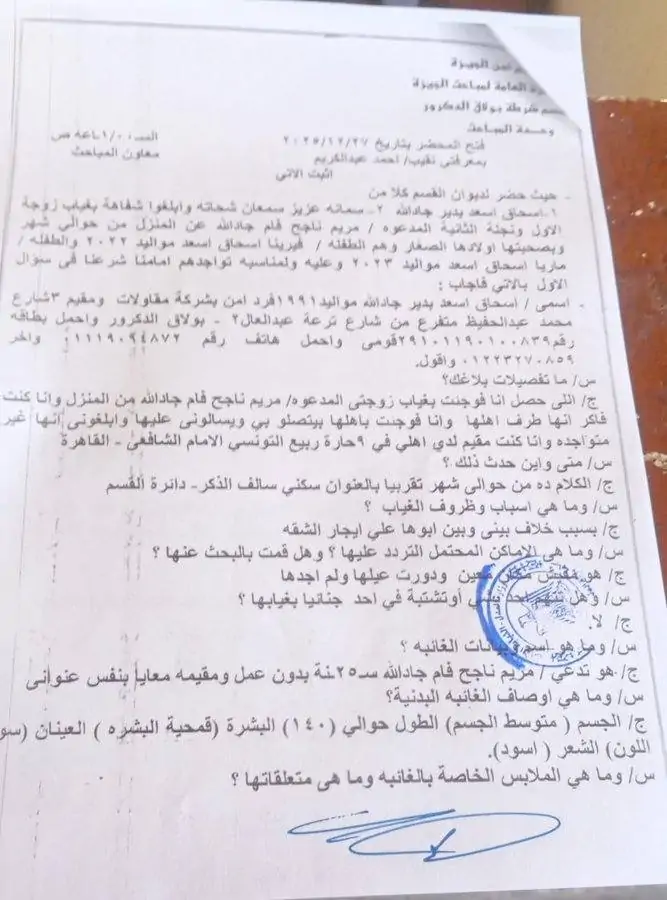 من الجيزة
العامة لمباحث الجيزة
شرطة بولاق الدكرور
وحدة المباحث
فتح المحضر بتاريخ ٢٠٢٥/١٢/٢٧ الساعة ١/٠٠ ص
بمعرفتي نقيب/ احمد عبدالكريم معاون المباحث
اثبت الاتي
- حيث حضر لديوان القسم كلا من
١-اسحاق اسعد بدير جادالله ٢- سمانه عزيز سمعان شحاته وابلغوا شفاهة بغياب زوجة
الاول ونجلة الثانية المدعوه / مريم ناجح فام جادالله عن المنزل من حوالي شهر
وبصحبتها اولادها الصغار وهم الطفله / فيرينا اسحاق اسعد مواليد ٢٠٢٢ والطفله /
ماريا اسحاق اسعد مواليد ٢٠٢٣ وعليه ولمناسبه تواجدهم امامنا شرعنا في سوال
الاول بالاتي فاجاب :
- اسمى / اسحاق اسعد بدير جادالله مواليد١٩٩١ فرد امن بشركة مقاولات ومقيم ٣شارع
محمد عبدالحفيظ متفرع من شارع ترعة عبدالعال٢ - بولاق الدكرور واحمل بطاقه
رقم٢٩١٠١١٩٠١٠٠٨٣٩ قومى واحمل هاتف رقم ٠١١١٩٠٩٤٨٧٢ واخر
٠١٢٢٣٢٧٠٨٥٩ واقول.
س/ ما تفصيلات بلاغك؟
ج/ اللى حصل انا فوجئت بغياب زوجتى المدعوه/ مريم ناجح فام جادالله من المنزل وانا كنت
فاكر انها طرف اهلها وانا فوجئت باهلها بيتصلو بي ويسالونى عليها وابلغونى انها غير
متواجده وانا كنت مقيم لدي اهلي في ٩حارة ربيع التونسي الامام الشافعى - القاهرة
س/ متى واين حدث ذلك ؟
ج/ الكلام ده من حوالى شهر تقريبا بالعنوان سكني سالف الذكر- دائرة القسم
س/ وما هي اسباب وظروف الغياب ؟
ج/ بسبب خلاف بينى وبين ابوها علي ايجار الشقه
س/ وما هي الاماكن المحتمل التردد عليها ؟ وهل قمت بالبحث عنها ؟
ج/ هو مفيش مكان معين ودورت عيلها ولم اجدها
س/ وهل تتهم احد أوتشتبة في احد جنائيا بغيابها ؟
ج/ لا.
س/ وما هو اسم وبيانات الغائبه ؟
ج/ هو تدعي / مريم ناجح فام جادالله ســ٢٥ـنة بدون عمل ومقيمه معايا بنفس عنوانى
س/ وما هي اوصاف الغائبه البدنية؟
ج/ الجسم ( متوسط الجسم) الطول حوالي (١٤٠) البشرة (قمحية البشره ) العينان (سو
اللون) الشعر ( اسود).
س/ وما هي الملابس الخاصة بالغائبه وما هى متعلقاتها ؟